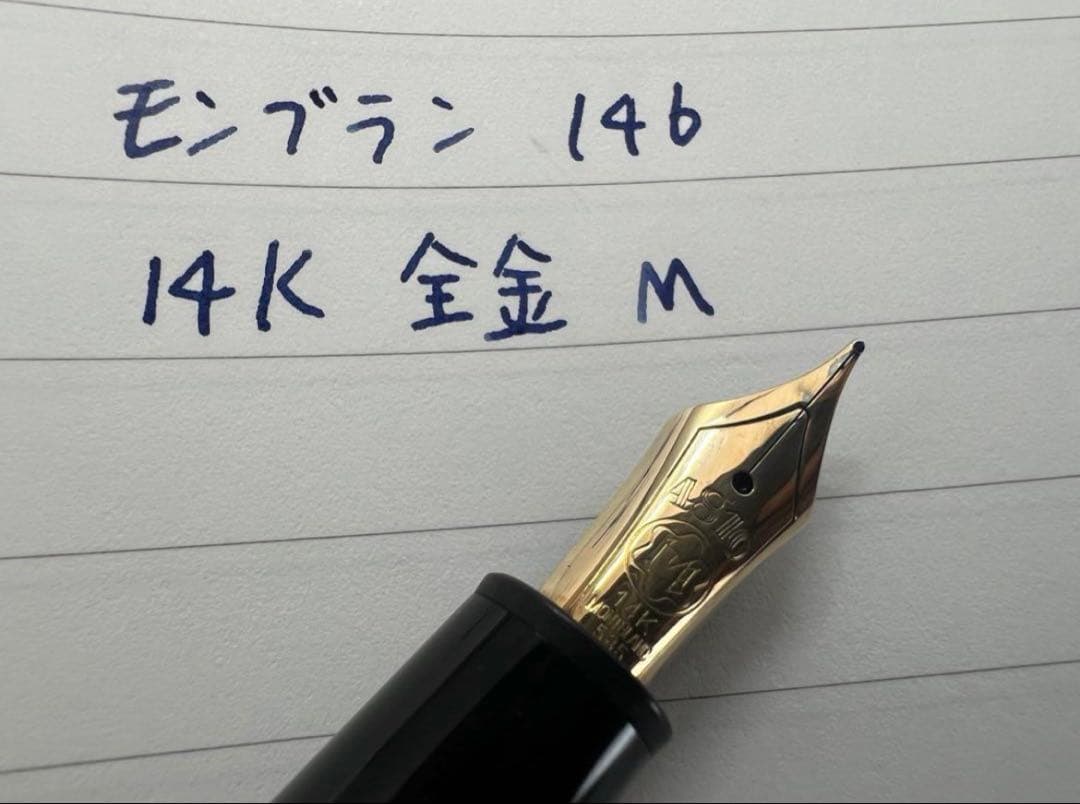 モンブラン 146
14K 全金 M
4810
M
14K
MONTBLANC
585